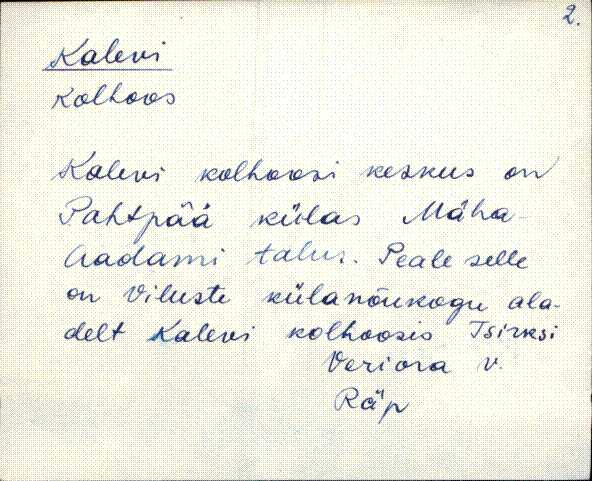 2.
Kalevi
Kolhoos
Kalevi kolhoosi keskus on
Pahtpää külas Mäha-
Aadami talus. Peale selle
on Viluste külanõukogu ala-
delt Kalevi kolhoosis Tsirksi
Veriora v.
Räp